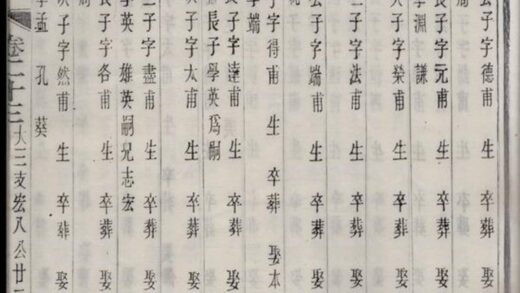 公子字德甫 生 卒葬 娶
長子字元甫 生 卒葬 娶
學淵 謙
次子字榮甫 生 卒葬 娶
三子字法甫 生 卒葬 娶
公子字端甫 生 卒葬 娶
長子字達甫 生 卒葬 娶
子字得甫 生 卒葬 娶本
學端
長子學英爲嗣
次子字太甫 生 卒葬 娶
三子字盡甫 生 卒葬 娶
學英 雄英嗣兄志宏
長子字各甫 生 卒葬 娶
次子字然甫 生 卒葬 娶
學孟 孔 葵
卷二十三 大三支宏八公廿